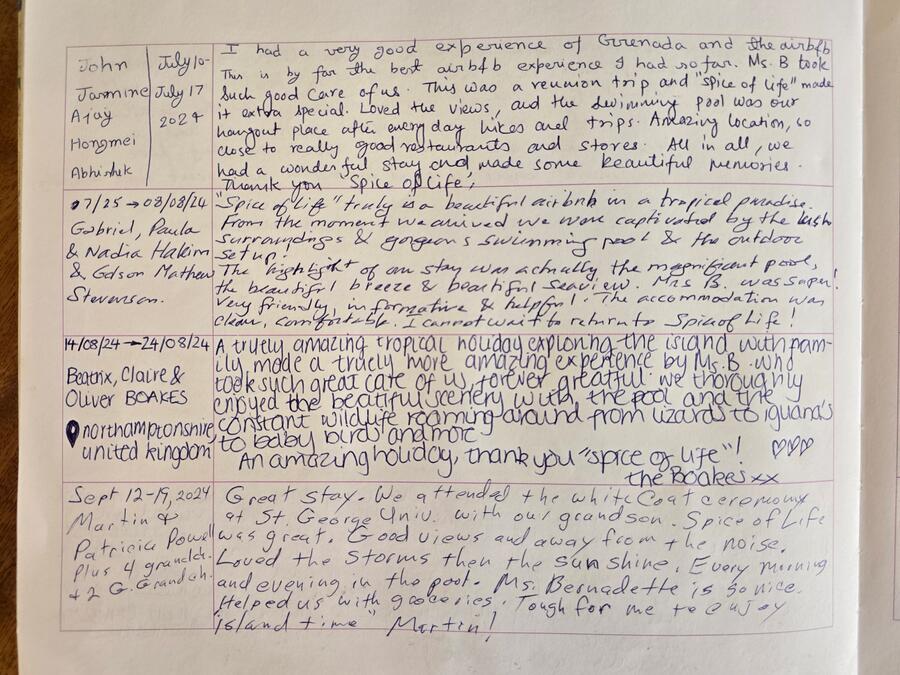 John
Jasmine
Ajay
Hongmei
Abhishek
July 10-
July 17
2024
I had a very good experience of Grenada and the airbfb
This is by far the best airbfb experience I had so far. Ms. B took
Such good care of us. This was a reunion trip and "spice of life" made
it extra special. Loved the views, and the swimming pool was our
hangout place after every day hikes and trips. Amazing location, so
close to really good restaurants and stores. All in all, we
had a wonderful stay and made some beautiful memories.
Thank you Spice of Life,
07/25 → 08/08/24
Gabriel, Paula
& Nadia Hakim
& Gdson Mathew
Stevenson.
"Spice of Life" truly is a beautiful airbnb in a tropical paradise.
From the moment we arrived we were captivated by the lush
surroundings & gorgeous swimming pool & the outdoor
set up!
The highlight of our stay was actually the magnificent pool,
the beautiful breeze & beautiful seaview. Mrs B. was super!
Very friendly, informative & helpful. The accommodation was
clean, comfortable. I cannot wait to return to Spice of Life!
14/08/24 → 24/08/24
Beatrix, Claire &
Oliver BOAKES
northamptonshire,
united kingdom
A truely amazing tropical holiday exploring the island with fam-
ily made a truely more amazing experience by Ms. B who
took such great care of us, forever greatful. we thoroughly
enjoyed the beautiful scenery with, the pool and the
constant wildlife roaming around from lizards to iguana's
to baby birds and more
An amazing holiday, thank you "spice of life"! ♡♡♡
the Boakes xx
Sept 12-19, 2024
Martin &
Patricia Powell
Plus 4 grandch.
+ 2 G. Grandch.
Great stay. We attended the white Coat ceremony
at St. George Univ. with our grandson. Spice of Life
was great. Good views and away from the noise.
Loved the storms then the sun shine. Every morning
and evening in the pool. Ms. Bernadette is so nice.
Helped us with groceries. Tough for me to enjoy
"island time" Martin!